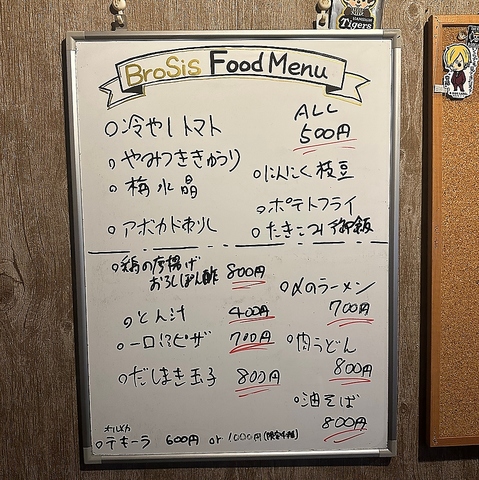 HANSHIN
Tigers
BroSis Food Menu
ALL
500円
○冷やしトマト
○やみつききゅうり
○梅水晶
○アボカドわさび
○にんにく枝豆
○ポテトフライ
○たきこみ御飯
○鶏の唐揚げ
おろしぽん酢 800円
○とん汁 400円
○一口ピザ 700円
○だしまき玉子 800円
○〆のラーメン
700円
○肉うどん
800円
○油そば
800円
○テキーラ 600円 or 1000円